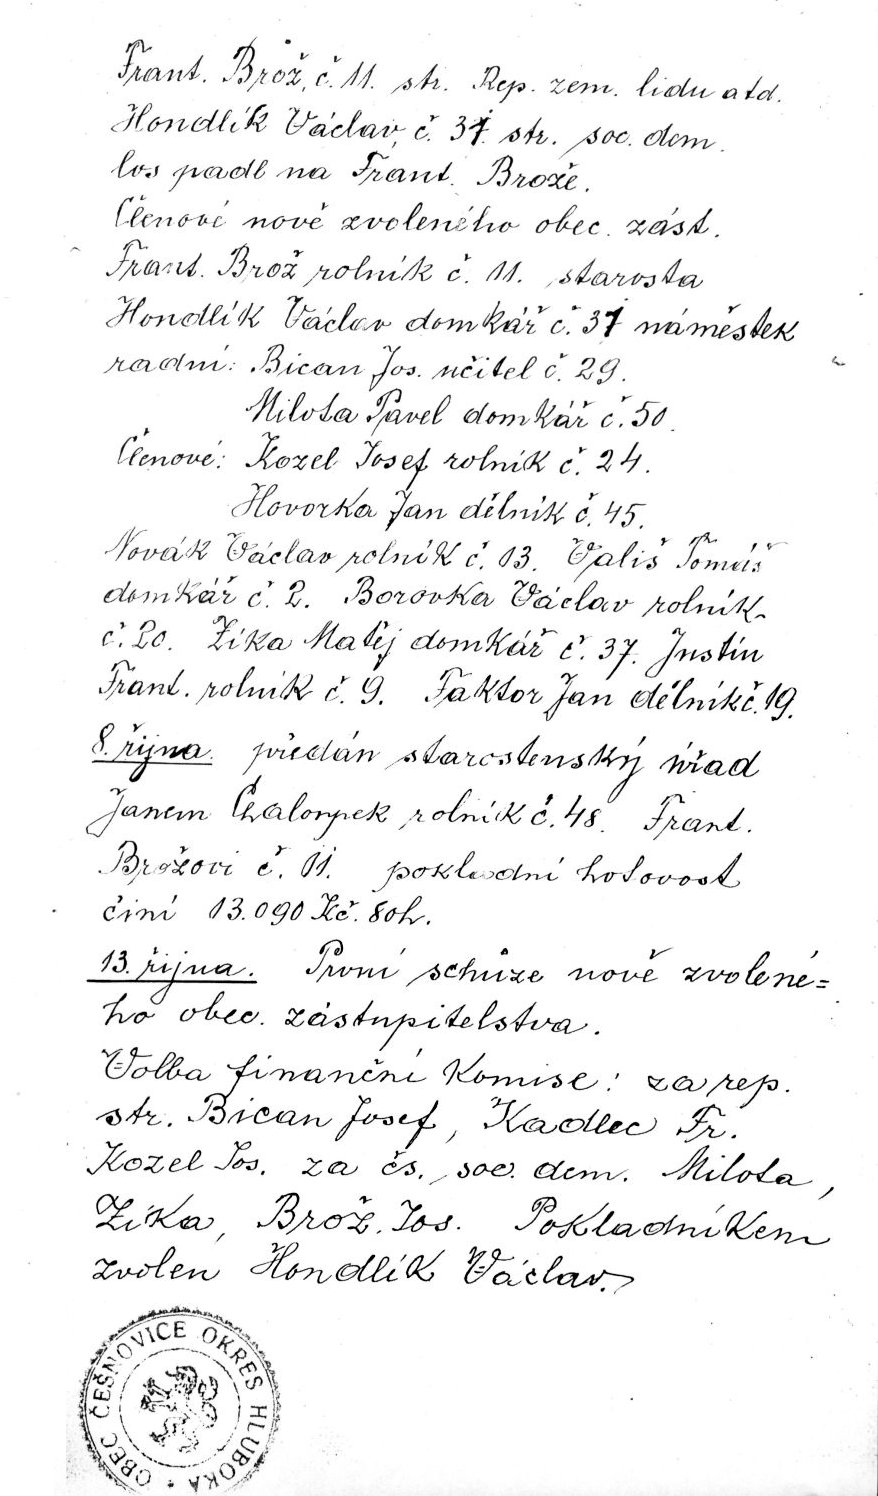 Frant. Brož, č. 11. str. Rep. zem. lidu atd.
Hondlík Václav, č. 31. str. soc. dem.
los padl na Frant. Brože.
Členové nově zvoleného obec. zást.
Frant. Brož rolník č. 11. starosta
Hondlík Václav domkář č. 31 náměstek
radní: Bican Jos. učitel č. 29.
Milota Pavel domkář č. 50.
Členové: Kozel Josef rolník č. 24.
Hovorka Jan dělník č. 45.
Novák Václav rolník č. 13. Vališ Tomáš
domkář č. 2. Borovka Václav rolník
č. 20. Zíka Matěj domkář č. 37. Justin
Frant. rolník č. 9. Faktor Jan dělník č. 19.
8. října. předán starostenský úřad
Janem rolník č. 48. Frant.
Brožovi č. 11. pokladní hotovost
činí 13.090 Kč. 80h.
13. října. První schůze nově zvolené=
ho obec. zástupitelstva.
Volba finanční komise: za rep.
str. Bican Josef, Kadlec Fr.
Kozel Jos. za čs. soc. dem. Milota,
Zíka, Brož Jos. Pokladníkem
zvolen Hondlík Václav.
OBEC ČEŠNOVICE OKRES HLUBOKÁ